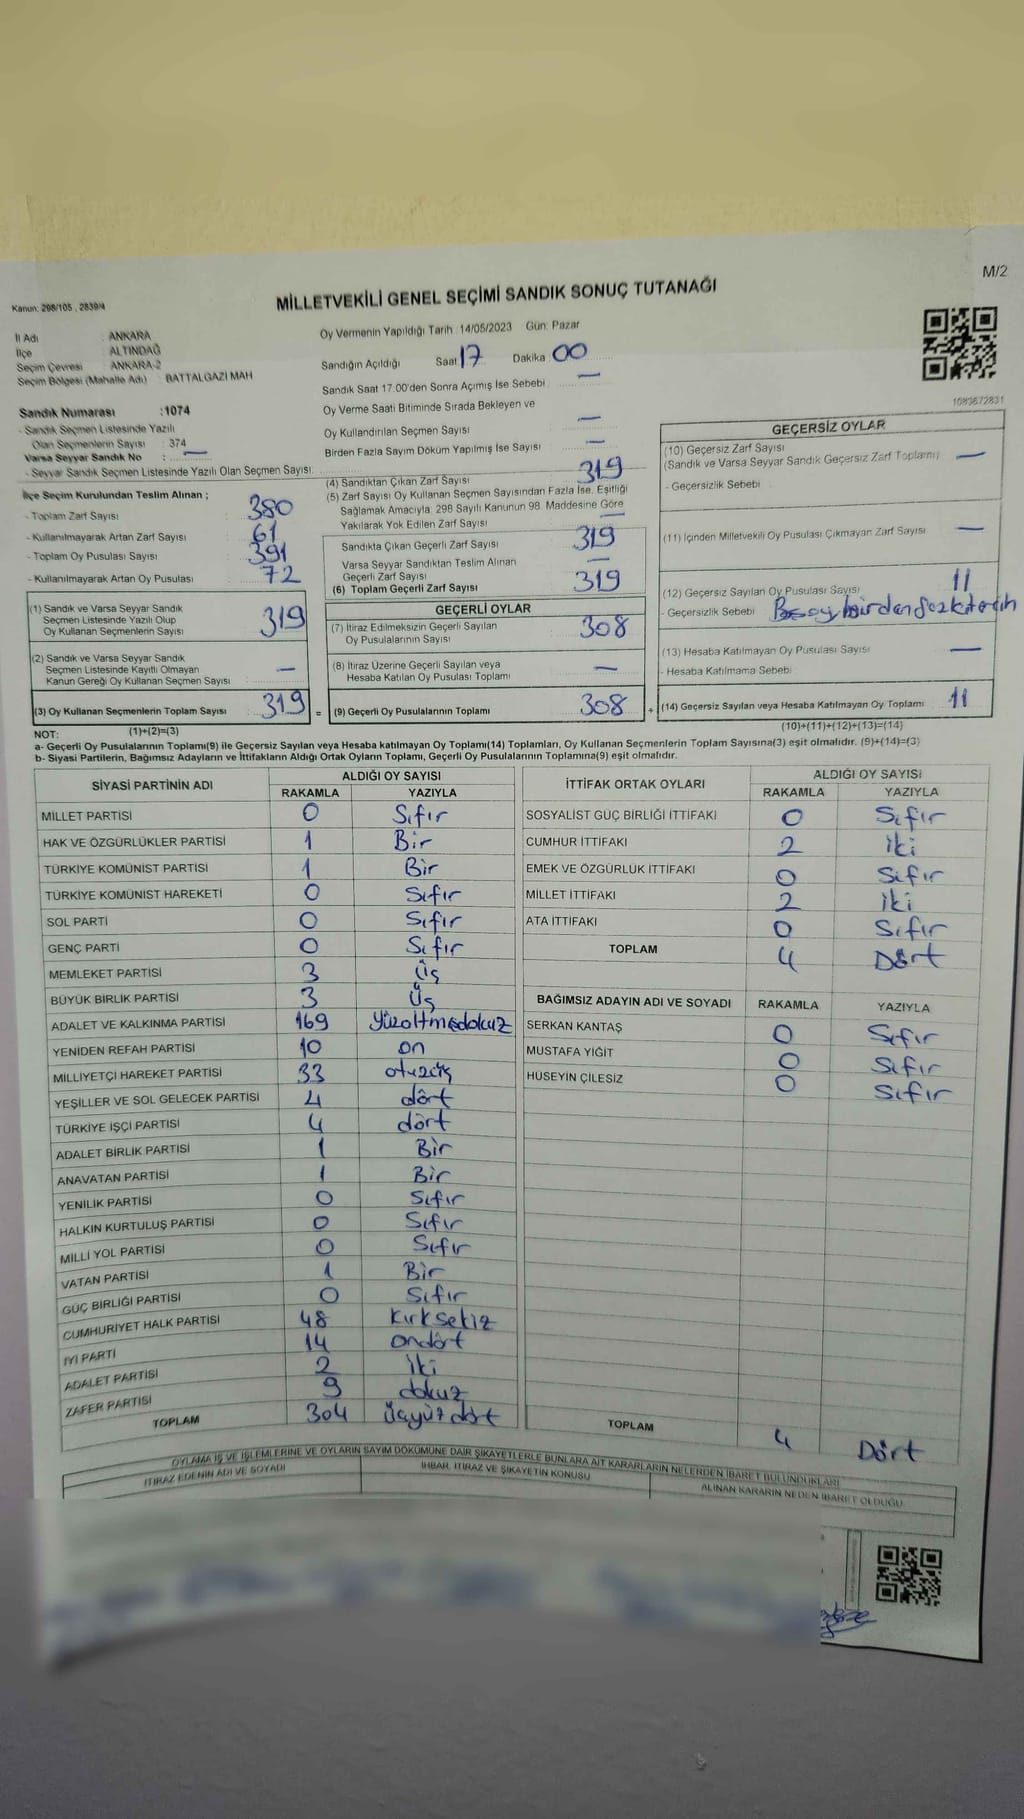 M/2
Kanun: 298/105 , 2839/4
MİLLETVEKİLİ GENEL SEÇİMİ SANDIK SONUÇ TUTANAĞI
İl Adı : ANKARA
İlçe : ALTINDAĞ
Seçim Çevresi : ANKARA-2
Seçim Bölgesi (Mahalle Adı) : BATTALGAZİ MAH
Sandık Numarası :1074
- Sandık Seçmen Listesinde Yazılı
Olan Seçmenlerin Sayısı : 374
Varsa Seyyar Sandık No : —
- Seyyar Sandık Seçmen Listesinde Yazılı Olan Seçmen Sayısı:
Oy Vermenin Yapıldığı Tarih :14/05/2023 Gün: Pazar
Sandığın Açıldığı Saat 17 Dakika 00
Sandık Saat 17.00'den Sonra Açımış İse Sebebi : —
Oy Verme Saati Bitiminde Sırada Bekleyen ve
Oy Kullandırılan Seçmen Sayısı —
Birden Fazla Sayım Döküm Yapılmış İse Sayısı —
1083672831
İlçe Seçim Kurulundan Teslim Alınan ;
- Toplam Zarf Sayısı 380
- Kullanılmayarak Artan Zarf Sayısı 61
- Toplam Oy Pusulası Sayısı 391
- Kullanılmayarak Artan Oy Pusulası 72
(1) Sandık ve Varsa Seyyar Sandık
Seçmen Listesinde Yazılı Olup
Oy Kullanan Seçmenlerin Sayısı 319
(2) Sandık ve Varsa Seyyar Sandık
Seçmen Listesinde Kayıtlı Olmayan
Kanun Gereği Oy Kullanan Seçmen Sayısı —
(3) Oy Kullanan Seçmenlerin Toplam Sayısı 319 =
(4) Sandıktan Çıkan Zarf Sayısı 319
(5) Zarf Sayısı Oy Kullanan Seçmen Sayısından Fazla İse, Eşitliği
Sağlamak Amacıyla; 298 Sayılı Kanunun 98. Maddesine Göre
Yakılarak Yok Edilen Zarf Sayısı —
Sandıkta Çıkan Geçerli Zarf Sayısı 319
Varsa Seyyar Sandıktan Teslim Alınan
Geçerli Zarf Sayısı —
(6) Toplam Geçerli Zarf Sayısı 319
GEÇERLİ OYLAR
(7) İtiraz Edilmeksizin Geçerli Sayılan
Oy Pusulalarının Sayısı 308
(8) İtiraz Üzerine Geçerli Sayılan veya
Hesaba Katılan Oy Pusulası Toplamı —
(9) Geçerli Oy Pusulalarının Toplamı 308 +
GEÇERSİZ OYLAR
(10) Geçersiz Zarf Sayısı
(Sandık ve Varsa Seyyar Sandık Geçersiz Zarf Toplamı) —
- Geçersizlik Sebebi :
(11) İçinden Milletvekili Oy Pusulası Çıkmayan Zarf Sayısı —
(12) Geçersiz Sayılan Oy Pusulası Sayısı 11
- Geçersizlik Sebebi
(13) Hesaba Katılmayan Oy Pusulası Sayısı —
- Hesaba Katılmama Sebebi
(14) Geçersiz Sayılan veya Hesaba Katılmayan Oy Toplamı 11
NOT: (1)+(2)=(3) (10)+(11)+(12)+(13)=(14)
a- Geçerli Oy Pusulalarının Toplamı(9) ile Geçersiz Sayılan veya Hesaba katılmayan Oy Toplamı(14) Toplamları, Oy Kullanan Seçmenlerin Toplam Sayısına(3) eşit olmalıdır. (9)+(14)=(3)
b- Siyasi Partilerin, Bağımsız Adayların ve İttifakların Aldığı Ortak Oyların Toplamı, Geçerli Oy Pusulalarının Toplamına(9) eşit olmalıdır.
SİYASİ PARTİNİN ADI ALDIĞI OY SAYISI
RAKAMLA YAZIYLA
MİLLET PARTİSİ 0 Sıfır
HAK VE ÖZGÜRLÜKLER PARTİSİ 1 Bir
TÜRKİYE KOMÜNİST PARTİSİ 1 Bir
TÜRKİYE KOMÜNİST HAREKETİ 0 Sıfır
SOL PARTİ 0 Sıfır
GENÇ PARTİ 0 Sıfır
MEMLEKET PARTİSİ 3 Üç
BÜYÜK BİRLİK PARTİSİ 3 Üç
ADALET VE KALKINMA PARTİSİ 169 Yüzaltmışdokuz
YENİDEN REFAH PARTİSİ 10 on
MİLLİYETÇİ HAREKET PARTİSİ 33 otuzüç
YEŞİLLER VE SOL GELECEK PARTİSİ 4 dört
TÜRKİYE İŞÇİ PARTİSİ 4 dört
ADALET BİRLİK PARTİSİ 1 Bir
ANAVATAN PARTİSİ 1 Bir
YENİLİK PARTİSİ 0 Sıfır
HALKIN KURTULUŞ PARTİSİ 0 Sıfır
MİLLİ YOL PARTİSİ 0 Sıfır
VATAN PARTİSİ 1 Bir
GÜÇ BİRLİĞİ PARTİSİ 0 Sıfır
CUMHURİYET HALK PARTİSİ 48 Kırksekiz
İYİ PARTİ 14 ondört
ADALET PARTİSİ 2 iki
ZAFER PARTİSİ 9 dokuz
TOPLAM 304 Üçyüzdört
İTTİFAK ORTAK OYLARI ALDIĞI OY SAYISI
RAKAMLA YAZIYLA
SOSYALİST GÜÇ BİRLİĞİ İTTİFAKI 0 Sıfır
CUMHUR İTTİFAKI 2 iki
EMEK VE ÖZGÜRLÜK İTTİFAKI 0 Sıfır
MİLLET İTTİFAKI 2 iki
ATA İTTİFAKI 0 Sıfır
TOPLAM 4 Dört
BAĞIMSIZ ADAYIN ADI VE SOYADI RAKAMLA YAZIYLA
SERKAN KANTAŞ 0 Sıfır
MUSTAFA YİĞİT 0 Sıfır
HÜSEYİN ÇİLESİZ 0 Sıfır
TOPLAM 4 Dört
OYLAMA İŞ VE İŞLEMLERİNE VE OYLARIN SAYIM DÖKÜMÜNE DAİR ŞİKAYETLERLE BUNLARA AİT KARARLARIN NELERDEN İBARET BULUNDUKLARI
İTİRAZ EDENİN ADI VE SOYADI İHBAR, İTİRAZ VE ŞİKAYETİN KONUSU ALINAN KARARIN NEDEN İBARET OLDUĞU